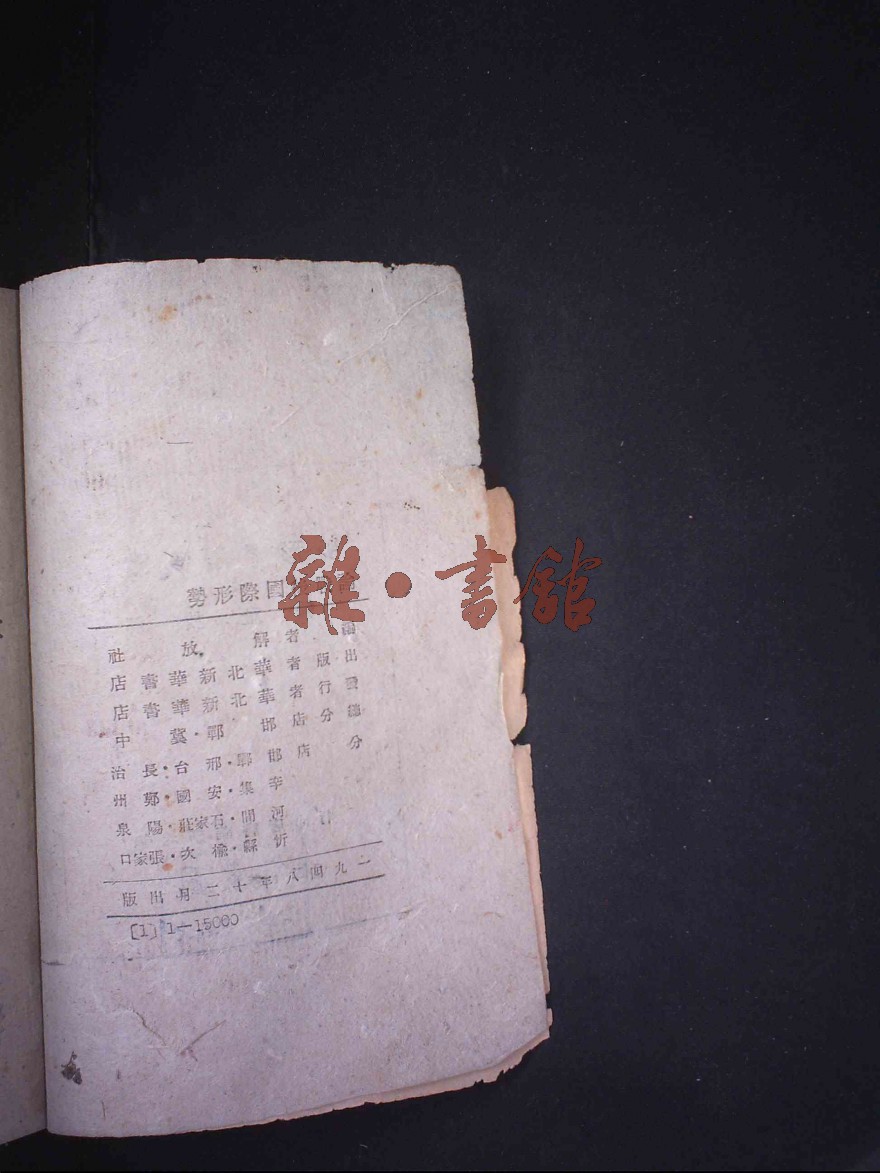 國際形勢
者 解放社
出版者 華北新華書店
發行者 華北新華書店
總分店 邯鄲·冀中
分店 邯鄲·邢台·長治
辛集·安國·鄭州
河間·石家莊·陽泉
忻縣·榆次·張家口
一九四八年十二月出版
[1] 1—15000
雜·書館